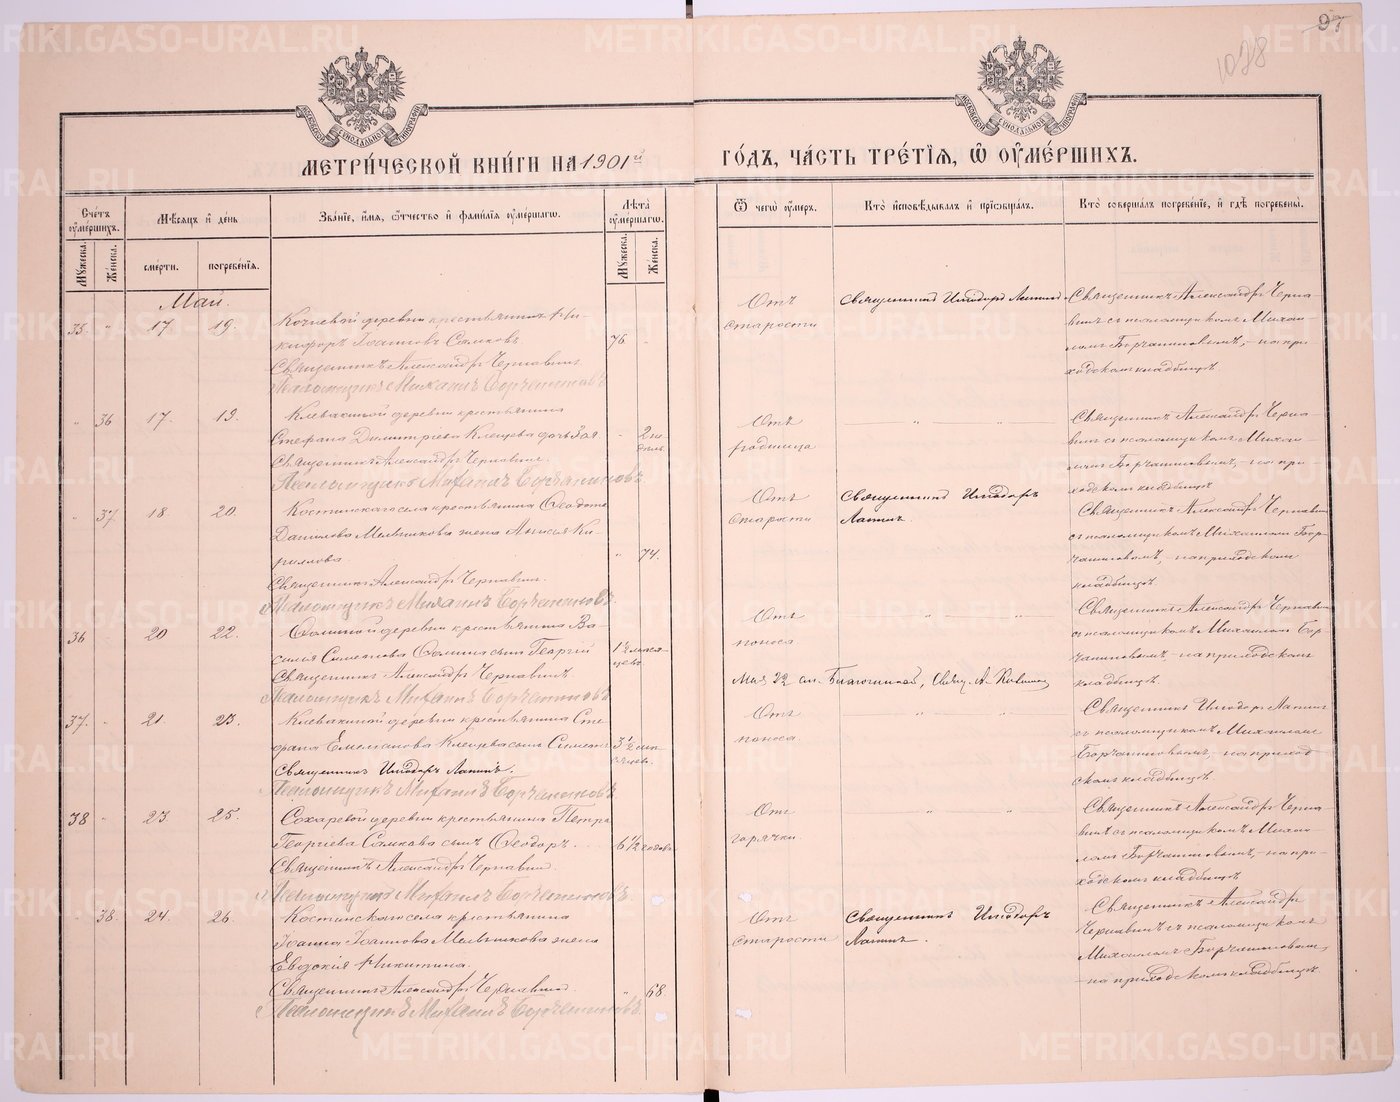 97
1028
МОСКОВСКОЙ СѴНОДАЛЬНОЙ ТИПОГРАФІИ
МОСКОВСКОЙ СѴНОДАЛЬНОЙ ТИПОГРАФІИ
МЕТРИ́ЧЕСКОЙ КНИ́ГИ НА 1901й
ГО́ДЪ, ЧА́СТЬ ТРЕ́ТІѦ, Ѡ ОУМЕ́РШИХЪ.
Сче́тъ оуме́ршихъ.
Мѣ́сѧцъ и҆ де́нь
Зва́ніе, и҆́мѧ, ѻ҆́тчество и҆ фами́лїѧ оуме́ршагѡ.
Лѣ́та оуме́ршагѡ.
Ѿ чегѡ̀ оу́меръ.
Кто̀ и҆сповѣ́дывалъ и҆ прїѡбща́лъ.
Кто̀ соверша́лъ погребе́нїе, и҆ гдѣ̀ погребены̀.
Мꙋ́жеска.
Же́нска.
сме́рти.
погребе́нїѧ.
Мꙋ́жеска.
Же́нска.
Май.
35 " 17. 19.
Кочневой деревни крестьянинъ Ни-
кифоръ Іоанновъ Самковъ.
76
Священникъ Александръ Чернавинъ
Псаломщикъ Михаилъ Борчаниновъ
Отъ
старости
Священникъ Исидоръ Лапинъ
Священникъ Александръ Черна-
винъ съ псаломщикомъ Михаи-
ломъ Борчаниновымъ,- на при-
ходскомъ кладбищѣ.
" 36 17. 19.
Клевакиной деревни крестьянина
Стефана Димитріева Клещева дочь Зоя
" 2 не
дѣль.
Священникъ Александръ Чернавинъ.
Псаломщикъ Михаилъ Борчаниновъ
Отъ
родимца
" "
Священникъ Александръ Черна-
винъ съ псаломщикомъ Михаи-
ломъ Борчаниновымъ,- на при-
ходскомъ кладбищѣ
" 37 18. 20.
Костинскаго села крестьянина Ѳеодота
Данилова Мельникова жена Анисія Ки-
риллова.
" 74.
Священникъ Александръ Чернавинъ.
Псаломщикъ Михаилъ Борчаниновъ
Отъ
старости
Священникъ Исидоръ
Лапинъ.
Священникъ Александръ Чернавинъ
съ псаломщикомъ Михаиломъ Бор-
чаниновымъ,- на приходскомъ
кладбищѣ
36 20 22.
Ѳоминой деревни крестьянина Ва-
силія Симеонова Ѳомина сынъ Георгій
1½ мѣся-
цевъ
Священникъ Александръ Чернавинъ
Псаломщикъ Михаилъ Борчаниновъ
Отъ
поноса
" "
Священникъ Александръ Чернавинъ
съ псаломщикомъ Михаиломъ Бор-
чаниновымъ,- на приходскомъ
кладбищѣ
Мая 22 сл. Благочинный, Свящ. А.
37. " 21. 23.
Клевакиной деревни крестьянина Сте-
фана Емелианова Клещева сынъ Симеонъ
3½ мѣ-
сяцевъ.
Священникъ Исидоръ Лапинъ.
Псаломщикъ Михаилъ Борчаниновъ
Отъ
поноса.
" "
Священникъ Исидоръ Лапинъ
съ псаломщикомъ Михаиломъ
Борчаниновымъ,- на приход
скомъ кладбищѣ
38 " 23 25.
Сохаревой деревни крестьянина Петра
Георгіева Самкова сынъ Ѳеодоръ.
6½ годовъ
Священникъ Александръ Чернавинъ
Псаломщикъ Михаилъ Борчаниновъ.
Отъ
горячки.
" "
Священникъ Александръ Черна-
винъ съ псаломщикомъ Михаи-
ломъ Борчаниновымъ,- на при-
ходскомъ кладбищѣ
" 38. 24. 26.
Костинскаго села крестьянина
Іоанна Іоаннова Мельникова жена
Евдокія Никитина.
Священникъ Александръ Чернавинъ.
" 68.
Псаломщикъ Михаилъ Борчаниновъ.
Отъ
старости
Священникъ Исидоръ
Лапинъ.
Священникъ Александръ
Чернавинъ съ псаломщикомъ
Михаиломъ Борчаниновымъ,
- на приходскомъ кладбищѣ.
METRIKI.GASO-URAL.RU